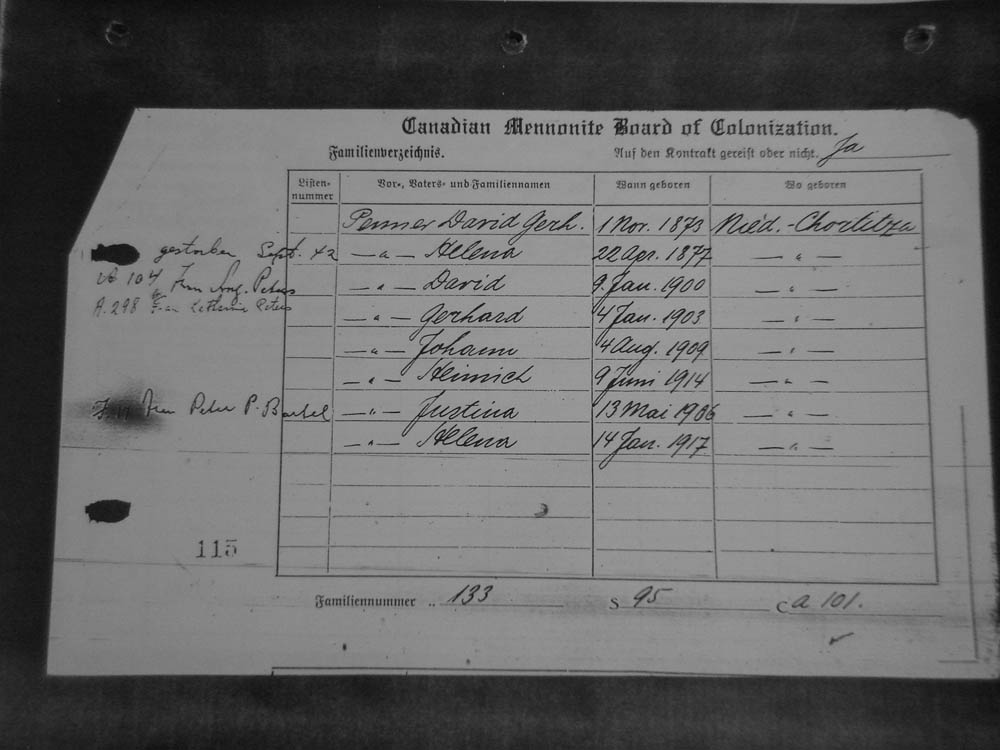 Canadian Mennonite Board of Colonization.
Familienverzeichnis. Auf den Kontrakt gereist oder nicht. Ja
Listen-nummer Vor-, Vaters- und Familiennamen Wann geboren Wo geboren
Penner David Gerh. 1 Nov. 1873 Nied.-Chortitza
gestorben Sept. 42 —"— Helena 22 Apr. 1877 —"—
104 Peters —"— David 9 Jan. 1900 —"—
A. 298 Frau Peters —"— Gerhard 4 Jan. 1903 —"—
—"— Johann 4 Aug. 1909 —"—
—"— Heinrich 9 Juni 1914 —"—
Frau Peter P. Bartel —"— Justina 13 Mai 1906 —"—
—"— Helena 14 Jan. 1917 —"—
115
Familiennummer .. 133 S 95 C a 101.